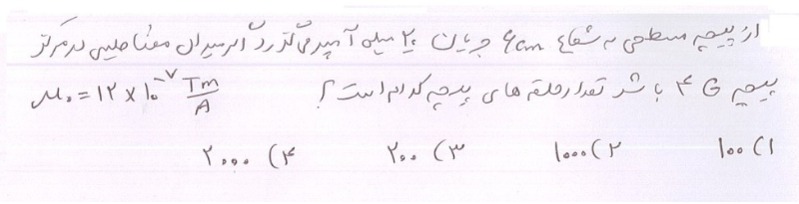 از پیچه مسطحی به شعاع ۶cm جریان ۲۰ میلی آمپر می‌گذرد اگر میدان مغناطیسی در مرکز
پیچه ۴ G باشد تعداد حلقه های پیچه کدام است؟ μ₀ = ۱۲ × ۱۰⁻⁷ Tm/A
۱) ۱۰۰ ۲) ۱۰۰۰ ۳) ۲۰۰ ۴) ۲۰۰۰